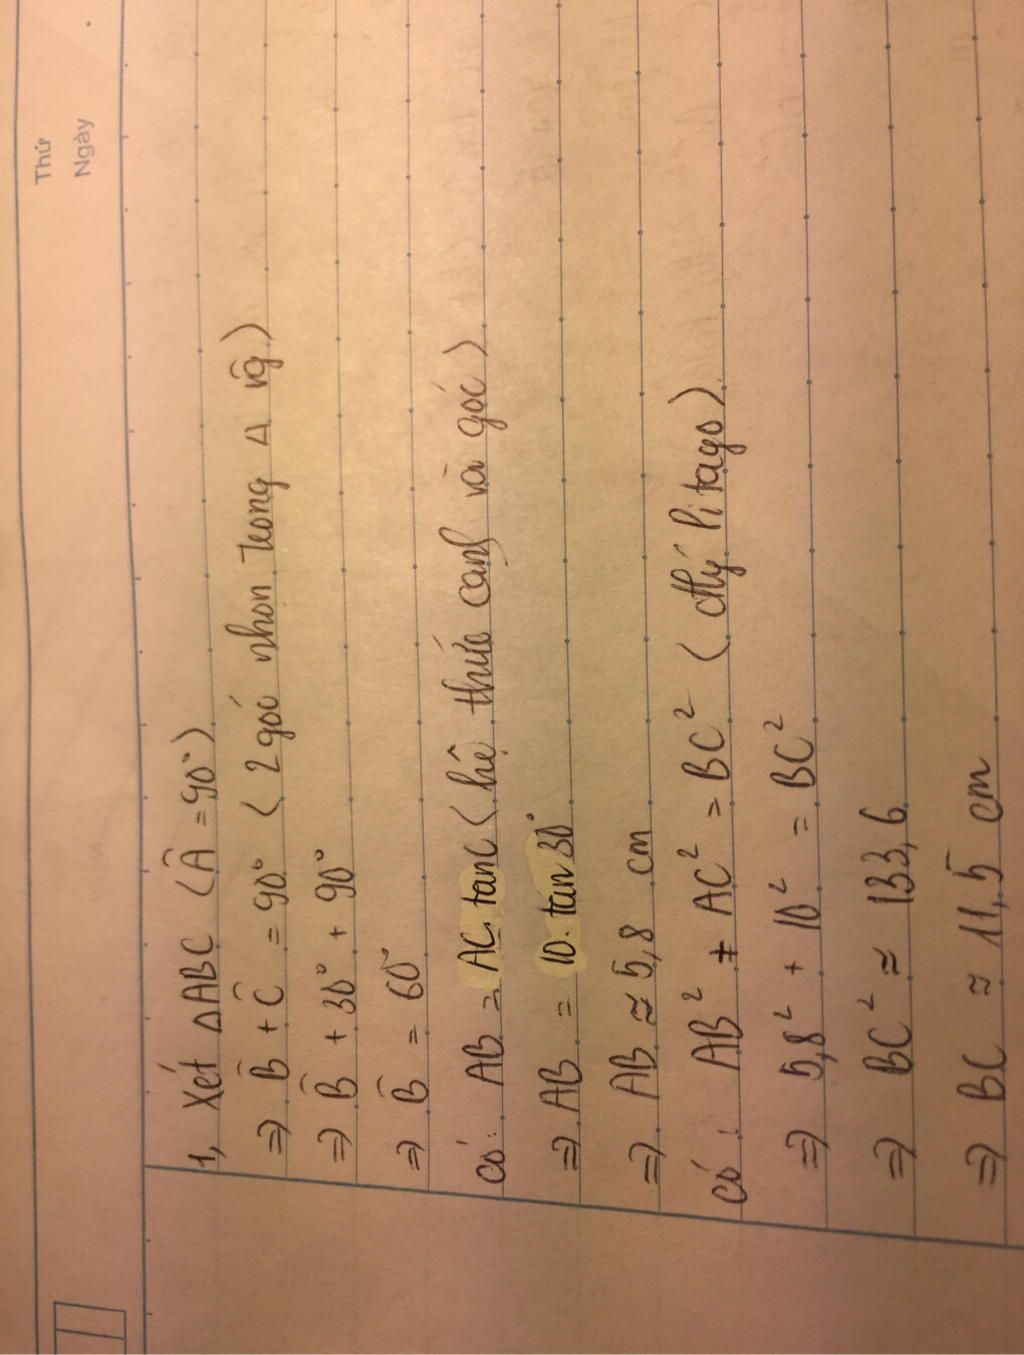 Thứ
Ngày
1, Xét ΔABC (Â = 90°)
⇒ B̂ + Ĉ = 90° (2 góc nhọn trong Δ vĝ)
⇒ B̂ + 30° + 90°
⇒ B̂ = 60°
có: AB = AC. tanC (hệ thức cạnh và góc)
⇒ AB = 10. tan 30°
⇒ AB ≈ 5,8 cm
có: AB² + AC² = BC² (đlý Pitago)
⇒ 5,8² + 10² = BC²
⇒ BC² ≈ 133,6
⇒ BC ≈ 11,5 cm